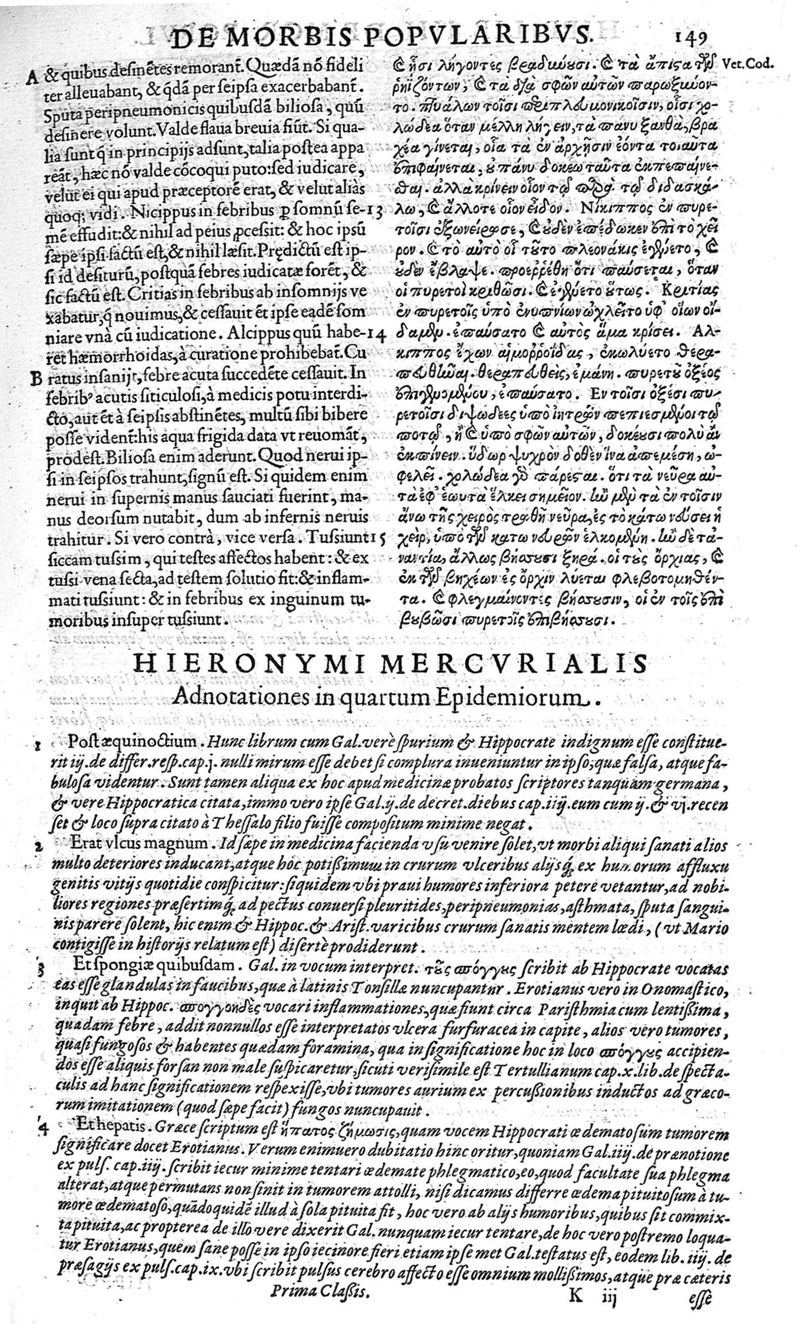 DE MORBIS POPVLARIBVS. 149
A & quibus desinētes remorant̃. Quædā nō fideli
ter alleuabant, & q̃dā per seipsa exacerbabant̃.
Sputa peripneumonicis quibusdā biliosa, quū
desinere volunt. Valde flaua breuia fiūt. Si qua-
lia sunt q̃ in principijs adsunt, talia postea appa
reāt, hæc nō valde cōcoqui puto: sed iudicare,
velut ei qui apud præceptorē erat, & velut aliàs
quoq; vidi. Nicippus in febribus ꝑ somnū se-
mē effudit: & nihil ad peius ꝓcessit: & hoc ipsū
sæpe ipsi factū est, & nihil læsit. Prędictū est ip-
si id desiturū, postquā febres iudicatæ forēt, &
sic factū est. Critias in febribus ab insomnijs ve
xabatur, q̃ nouimus, & cessauit ēt ipse eadē som
niare vnà cū iudicatione. Alcippus quū habe-
ret hæmorrhoidas, à curatione prohibebat̃. Cu
B ratus insanijt, febre acuta succedēte cessauit. In
febrib' acutis siticulosi, à medicis potu interdi-
cto, aut ēt à seipsis abstinētes, multū sibi bibere
posse vident̃: his aqua frigida data vt reuomāt,
prodest. Biliosa enim aderunt. Quod nerui ip-
si in seipsos trahunt, signū est. Si quidem enim
nerui in supernis manus sauciati fuerint, ma-
nus deorsum nutabit, dum ab infernis neruis
trahitur. Si vero contrà, vice versa. Tussiunt
siccam tussim, qui testes affectos habent: & ex
tussi vena secta, ad testem solutio fit: & inflam-
mati tussiunt: & in febribus ex inguinum tu-
moribus insuper tussiunt.
13
14
15
Vet. Cod.
οἷσι λήγοντες βραδύνουσι. Ϗ τὰ ἄπιστα τῶν
ῥηϊζόντων, Ϗ τὰ διὰ σφῶν αὐτῶν παρωξύνον-
το. πτυάλων τοῖσι περιπλευμονικοῖσιν, οἷσι χο-
λώδεα ὅταν μέλλῃ λήγειν, τὰ πάνυ ξανθὰ, βρα
χέα γίνεται, οἷα τὰ ἐν ἀρχῇσιν ἐόντα τοιαῦτα
ἐπιφαίνεται, οὐ πάνυ δοκέω ταῦτα ἐκπεπαίνε-
σθαι. ἀλλὰ κρίνειν οἷον τῷ παρὰ τῷ διδασκά-
λῳ, Ϗ ἄλλοτε οἷον εἶδον. Νίκιππος ἐν πυρε-
τοῖσι ἐξωνείρωσε, Ϗ οὐδὲν ἐπέδωκεν ἐπὶ τὸ χεῖ
ρον. Ϗ τὸ αὐτὸ οἱ τοῦτο πλεονάκις ἐγένετο, Ϗ
οὐδὲν ἔβλαψε. προερρέθη ὅτι παύσεται, ὅταν
οἱ πυρετοὶ κριθῶσι. Ϗ ἐγένετο οὕτως. Κριτίας
ἐν πυρετοῖς ὑπὸ ἐνυπνίων ὠχλεῖτο ὑφ᾽ οἵων οἴ-
δαμεν. ἐπαύσατο Ϗ αὐτὸς ἅμα κρίσει. Ἄλ-
κιππος ἔχων αἱμορροΐδας, ἐκωλύετο θερα-
πευθῆναι. θεραπευθεὶς, ἐμάνη. πυρετοῦ ὀξέος
ἐπιγενομένου, ἐπαύσατο. Ἐν τοῖσι ὀξέσι πυ-
ρετοῖσι διψώδεες ὑπὸ ἰητρῶν πεπιεσμένοι τῷ
ποτῷ, ἢ Ϗ ὑπὸ σφῶν αὐτῶν, δοκέουσι πολὺ ἂν
ἐκπίνειν. ὕδωρ ψυχρὸν δοθὲν ἵνα ἀπεμέσῃ, ὠ-
φελεῖ. χολώδεα γὰρ πάρεσται. ὅτι τὰ νεῦρα αὐ-
τὰ ἐφ᾽ ἑωυτὰ ἕλκει σημεῖον. ἢν μὲν τὰ ἐν τοῖσιν
ἄνω τῆς χειρὸς τρωθῇ νεῦρα, ἐς τὸ κάτω νεύσει ἡ
χεὶρ, ὑπὸ τῶν κάτω νεύρων ἑλκομένη. ἢν δὲ τἀ-
ναντία, ἄλλως βήσσουσι ξηρά. οἱ τοὺς ὄρχιας, Ϗ
ἐκ τῶν βηχέων ἐς ὄρχιν λύεται φλεβοτομηθέν-
τα. Ϗ φλεγμαίνοντες βήσσουσιν, οἱ ἐν τοῖς ἐπὶ
βουβῶσι πυρετοῖς ἐπιβήσσουσι.
HIERONYMI MERCVRIALIS
Adnotationes in quartum Epidemiorum.
1 Post æquinoctium. Hunc librum cum Gal. verè spurium & Hippocrate indignum esse constitue-
rit iij. de differ. resp. cap. j. nulli mirum esse debet si complura inueniuntur in ipso, quæ falsa, atque fa-
bulosa videntur. Sunt tamen aliqua ex hoc apud medicinæ probatos scriptores tanquàm germana,
& vere Hippocratica citata, immo vero ipse Gal. ij. de decret. diebus cap. iij. eum cum ij. & vj. recen
set & loco supra citato à Thessalo filio fuisse compositum minime negat.
2 Erat vlcus magnum. Id sæpe in medicina facienda vsu venire solet, vt morbi aliqui sanati alios
multo deteriores inducant, atque hoc potißimum in crurum vlceribus alijsq́; ex humorum affluxu
genitis vitijs quotidie conspicitur: siquidem vbi praui humores inferiora petere vetantur, ad nobi-
liores regiones præsertimq́; ad pectus conuersi pleuritides, peripneumonias, asthmata, sputa sangui-
nis parere solent, hic enim & Hippoc. & Arist. varicibus crurum sanatis mentem lædi, (vt Mario
contigisse in historijs relatum est) disertè prodiderunt.
3 Et spongiæ quibusdam. Gal. in vocum interpret. τοὺς σπόγγους scribit ab Hippocrate vocatas
eas esse glandulas in faucibus, quæ à latinis Tonsillæ nuncupantur. Erotianus vero in Onomastico,
inquit ab Hippoc. σπογγοειδὲς vocari inflammationes, quæ fiunt circa Paristhmia cum lentißima,
quadam febre, addit nonnullos esse interpretatos vlcera furfuracea in capite, alios vero tumores,
quasi fungosos & habentes quædam foramina, qua in significatione hoc in loco σπόγγους accipien-
dos esse aliquis forsan non male suspicaretur, sicuti verisimile est Tertullianum cap. x. lib. de specta-
culis ad hanc significationem respexisse, vbi tumores aurium ex percußionibus inductos ad græco-
rum imitationem (quod sæpe facit) fungos nuncupauit.
4 Et hepatis. Græce scriptum est ἥπατος ζήμωσις, quam vocem Hippocrati œdematosum tumorem
significare docet Erotianus. Verum enimuero dubitatio hinc oritur, quoniam Gal. iiij. de prænotione
ex puls. cap. iij. scribit iecur minime tentari œdemate phlegmatico, eo, quod facultate sua phlegma
alterat, atque permutans non sinit in tumorem attolli, nisi dicamus differre œdema pituitosum à tu-
more œdematoso, quādoquidē illud à sola pituita fit, hoc vero ab alijs humoribus, quibus sit commix-
ta pituita, ac propterea de illo vere dixerit Gal. nunquam iecur tentare, de hoc vero postremo loqua-
tur Erotianus, quem sane posse in ipso iecinore fieri etiam ipse met Gal. testatus est, eodem lib. iiij. de
præsagijs ex puls. cap. ix. vbi scribit pulsus cerebro affecto esse omnium mollißimos, atque præ cæteris
Prima Claßis. K iij esse